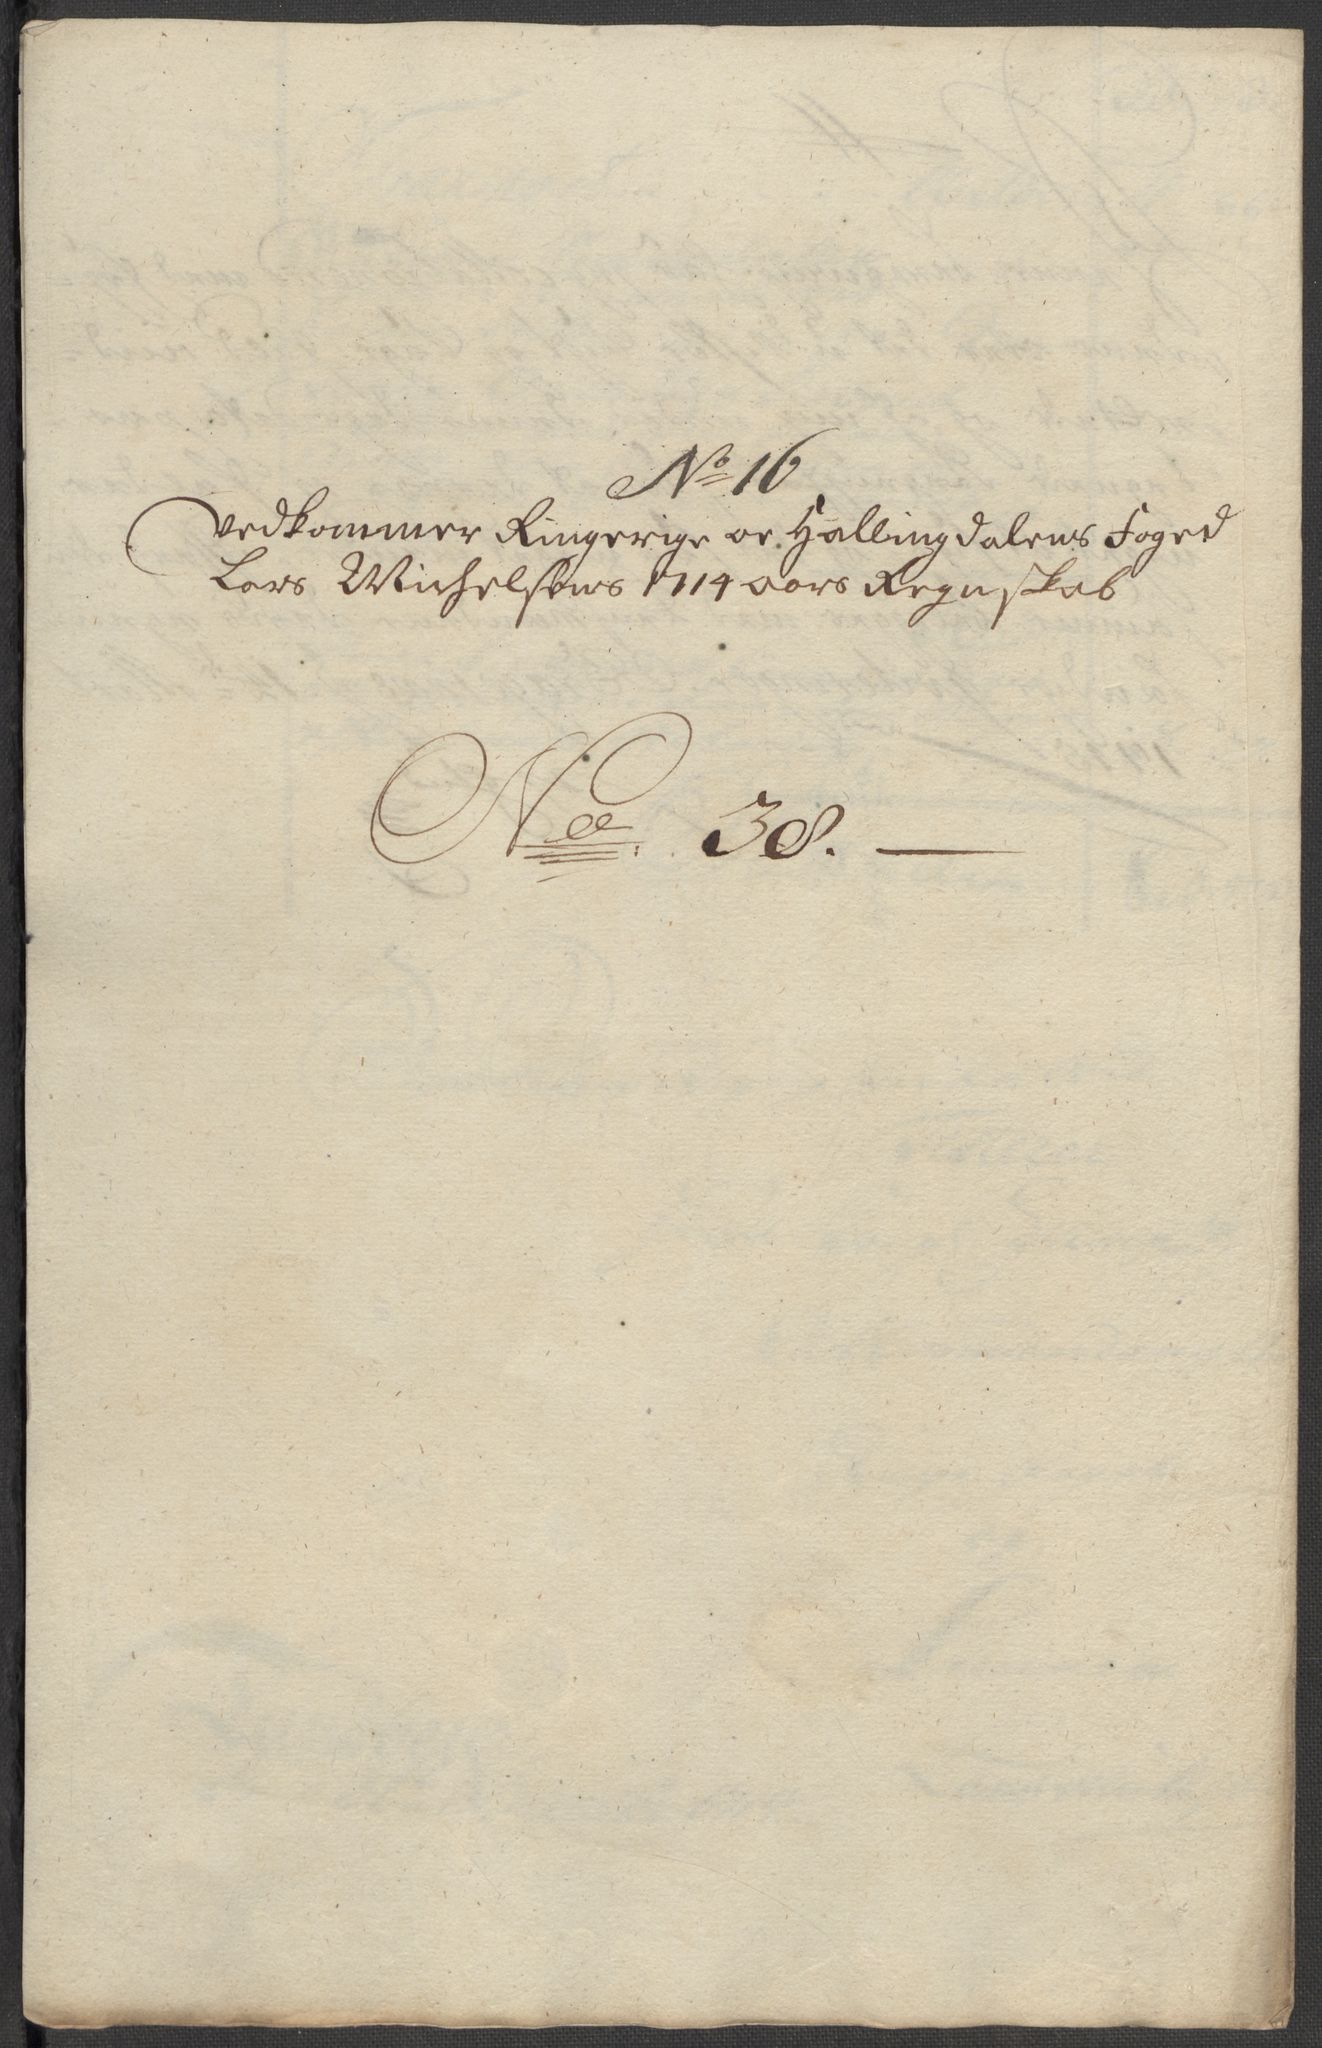 No 16
Vedkommer Ringerige oc Hallingdalens Foged
Lars Michelsens 1714 aars Regnskab
No. 38.